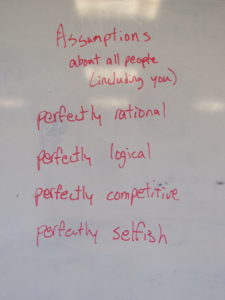 Assumptions
about all people
(including you)
perfectly rational
perfectly logical
perfectly competitive
perfectly selfish